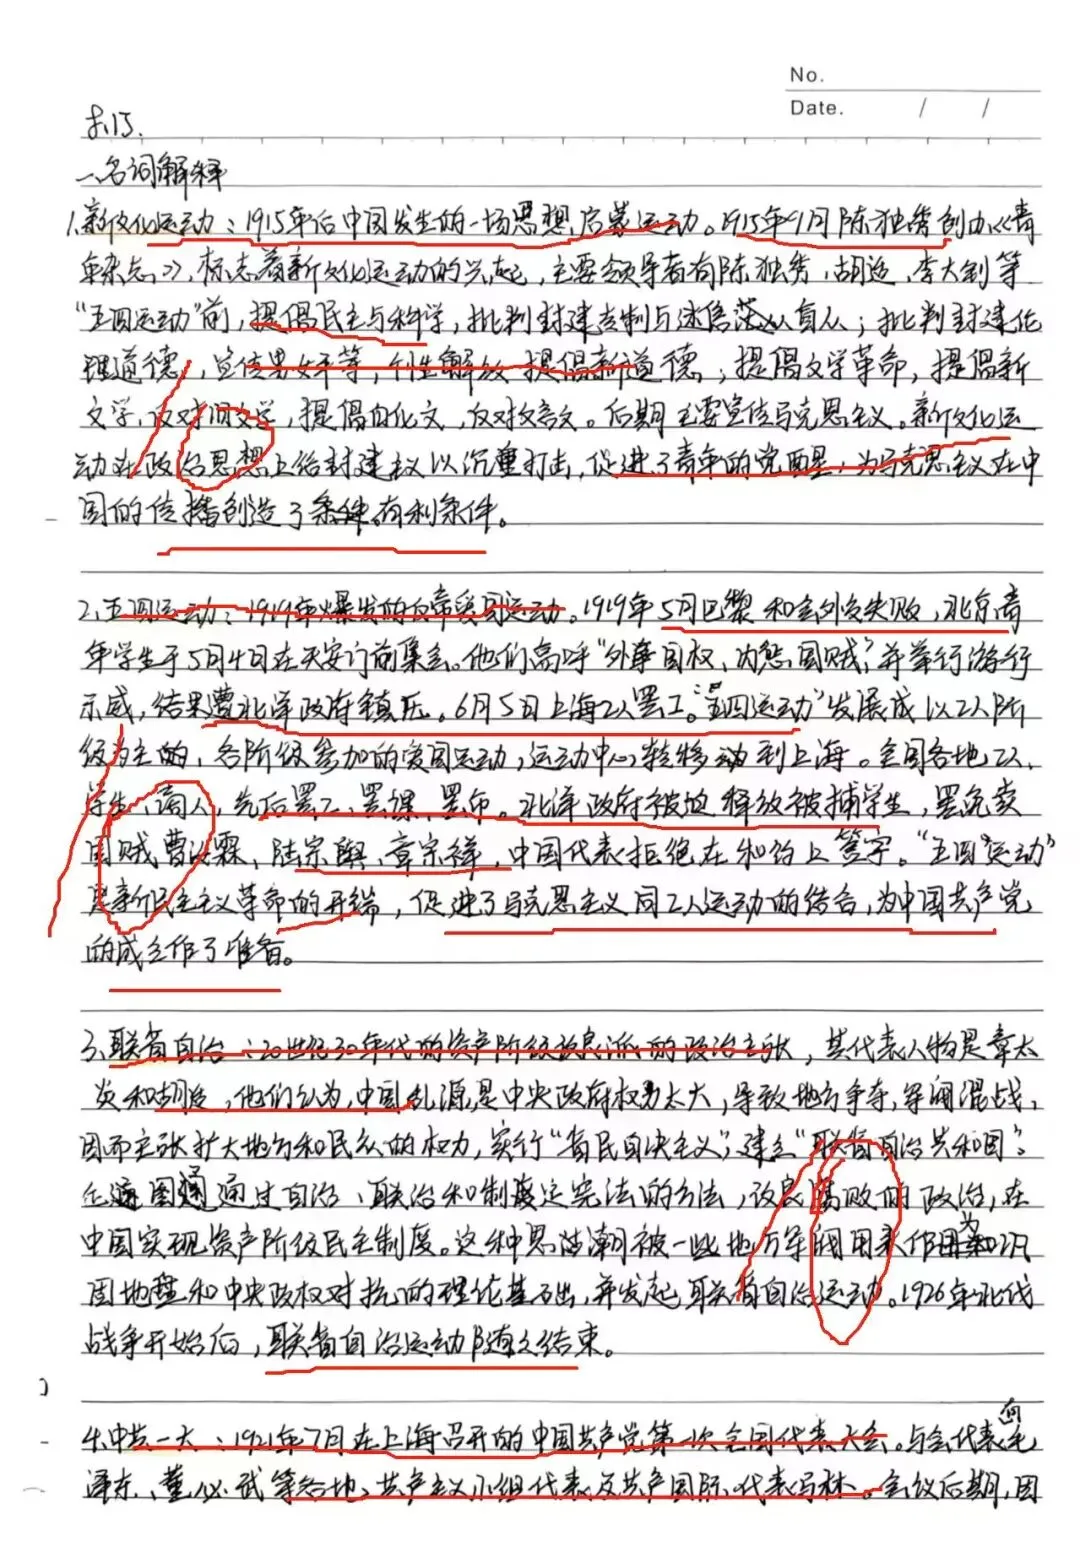 No.
Date. / /
一、名词解释
1.新文化运动：1915年后中国发生的一场思想启蒙运动。1915年9月陈独秀创办《青
年杂志》，标志着新文化运动的兴起，主要领导者有陈独秀、胡适、李大钊等
“五四运动”前，提倡民主与科学，批判封建专制与迷信盲从；批判封建伦
理道德，宣传男女平等，个性解放 提倡新道德；提倡文学革命，提倡新
文学，反对旧文学，提倡白化文，反对文言文。后期主要宣传马克思主义。新文化运
动在政治思想上给封建主义以沉重打击，促进了青年的觉醒，为马克思主义在中
国的传播创造了条件有利条件。
2、五四运动：1919年爆发的反帝爱国运动。1919年5月巴黎和会外交失败，北京青
年学生于5月4日在天安门前集会。他们高呼“外争国权，内惩国贼”，并举行游行
示威，结果遭北洋政府镇压。6月5日上海工人罢工。“五四运动”发展成以工人阶
级为主的，各阶级参加的爱国运动，运动中心转移动到上海。全国各地工人、
学生、商人，先后罢工、罢课、罢市。北洋政府被迫释放被捕学生，罢免卖
国贼曹汝霖、陆宗舆、章宗祥，中国代表拒绝在和约上签字。“五四”运动”
是新民主主义革命的开端，促进了马克思主义同工人运动的结合，为中国共产党
的成立作了准备。
3、联省自治：20世纪20年代的资产阶级改良派的政治主张，其代表人物是章太
炎和胡适，他们认为，中国乱源是中央政府权力太大，导致地方争夺，军阀混战，
因而主张扩大地方和民众的权力，实行“省民自决主义”，建立“联省自治共和国”。
企图通过自治、联治和制度定宪法的方法，改良腐败的政治，在
中国实现资产阶级民主制度。这种思潮被一些地方军阀用来作为和巩
固地盘和中央政权对抗的理论基础，并发起联省自治运动。1926年北伐
战争开始后，联省自治运动随之结束。
4.中共一大：1921年7月在上海召开的中国共产党第一次全国代表大会。与会代表毛
泽东、董必武等各地共产主义小组代表及共产国际代表马林。会议后期，因